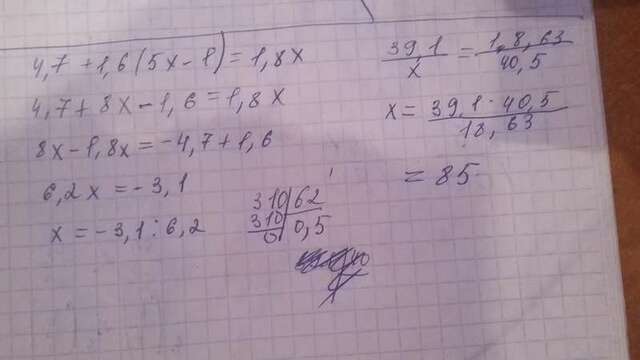 4,7 + 1,6 (5x - 1) = 1,8x
4,7 + 8x - 1,6 = 1,8x
8x - 1,8x = -4,7 + 1,6
6,2x = -3,1
x = -3,1 : 6,2
310 | 62
310 | 0,5
0
39,1 / x = 18,63 / 40,5
x = 39,1 · 40,5 / 18,63
= 85